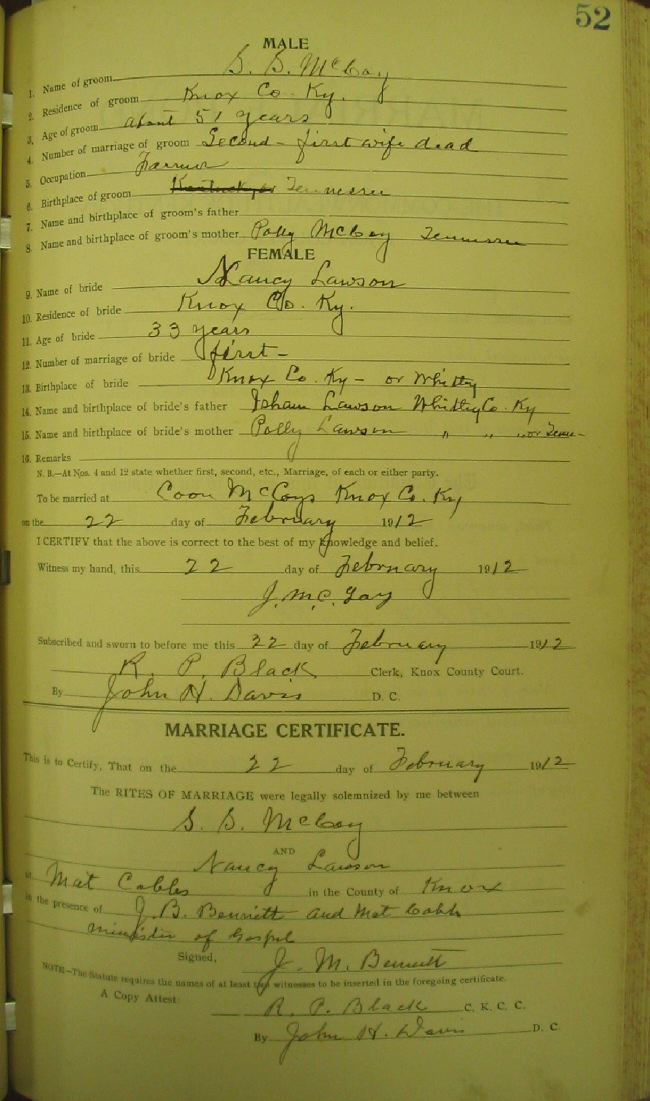 52
MALE
1. Name of groom S. S. McCoy
2. Residence of groom Knox Co. Ky.
3. Age of groom about 51 years
4. Number of marriage of groom Second - first wife dead
5. Occupation Farmer
6. Birthplace of groom Kentucky or Tennessee
7. Name and birthplace of groom's father
8. Name and birthplace of groom's mother Polly McCoy Tennessee
FEMALE
9. Name of bride Nancy Lawson
10. Residence of bride Knox Co. Ky.
11. Age of bride 33 years
12. Number of marriage of bride first -
13. Birthplace of bride Knox Co. Ky - or Whitley
14. Name and birthplace of bride's father Isham Lawson Whitley Co. Ky
15. Name and birthplace of bride's mother Polly Lawson " " " or Tenn -
16. Remarks
N. B.—At Nos. 4 and 12 state whether first, second, etc., Marriage, of each or either party.
To be married at Coon McCoys Knox Co. Ky
on the 22 day of February 1912
I CERTIFY that the above is correct to the best of my knowledge and belief.
Witness my hand, this 22 day of February 1912
J. Mc. Gay
Subscribed and sworn to before me this 22 day of February 1912
R. P. Black Clerk, Knox County Court.
By John H. Davis D. C.
MARRIAGE CERTIFICATE.
This is to Certify, That on the 22 day of February 1912
The RITES OF MARRIAGE were legally solemnized by me between
S. S. McCoy
AND
Nancy Lawson
at Mat Cobbs in the County of Knox
in the presence of J. B. Bennett and Mat Cobb
minister of Gospel
Signed, J. M. Bennett
NOTE—The Statute requires the names of at least two witnesses to be inserted in the foregoing certificate.
A Copy Attest: R. P. Black C. K. C. C.
By John H. Davis D. C.